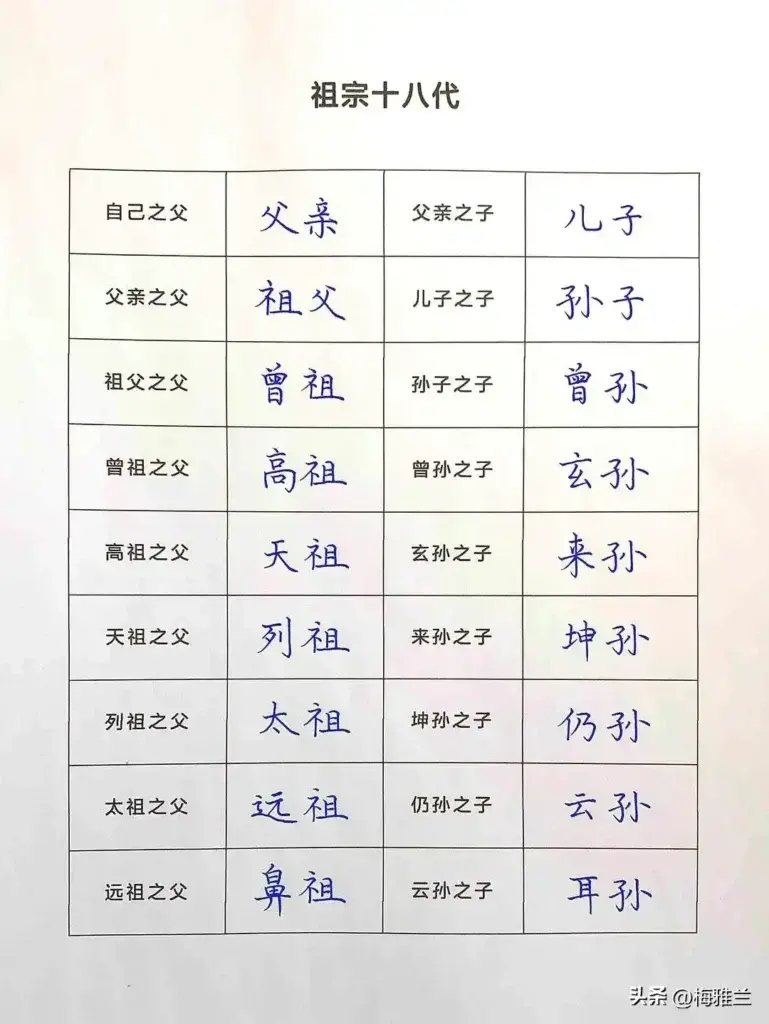 祖宗十八代
自己之父 父亲 父亲之子 儿子
父亲之父 祖父 儿子之子 孙子
祖父之父 曾祖 孙子之子 曾孙
曾祖之父 高祖 曾孙之子 玄孙
高祖之父 天祖 玄孙之子 来孙
天祖之父 列祖 来孙之子 坤孙
列祖之父 太祖 坤孙之子 仍孙
太祖之父 远祖 仍孙之子 云孙
远祖之父 鼻祖 云孙之子 耳孙
头条 @梅雅兰